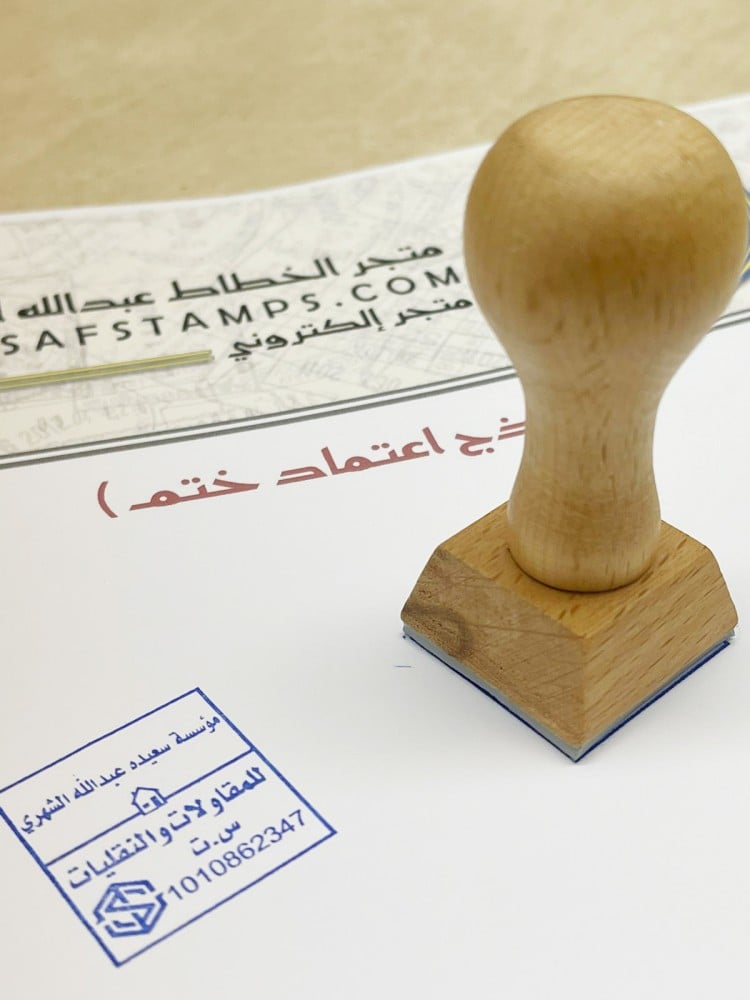 متجر الخطاط عبدالله
SAFSTAMPS.COM
متجر إلكتروني
اعتماد ختم )
مؤسسة سعيده عبدالله الشهري
للمقاولات والنقليات
س.ت
1010862347